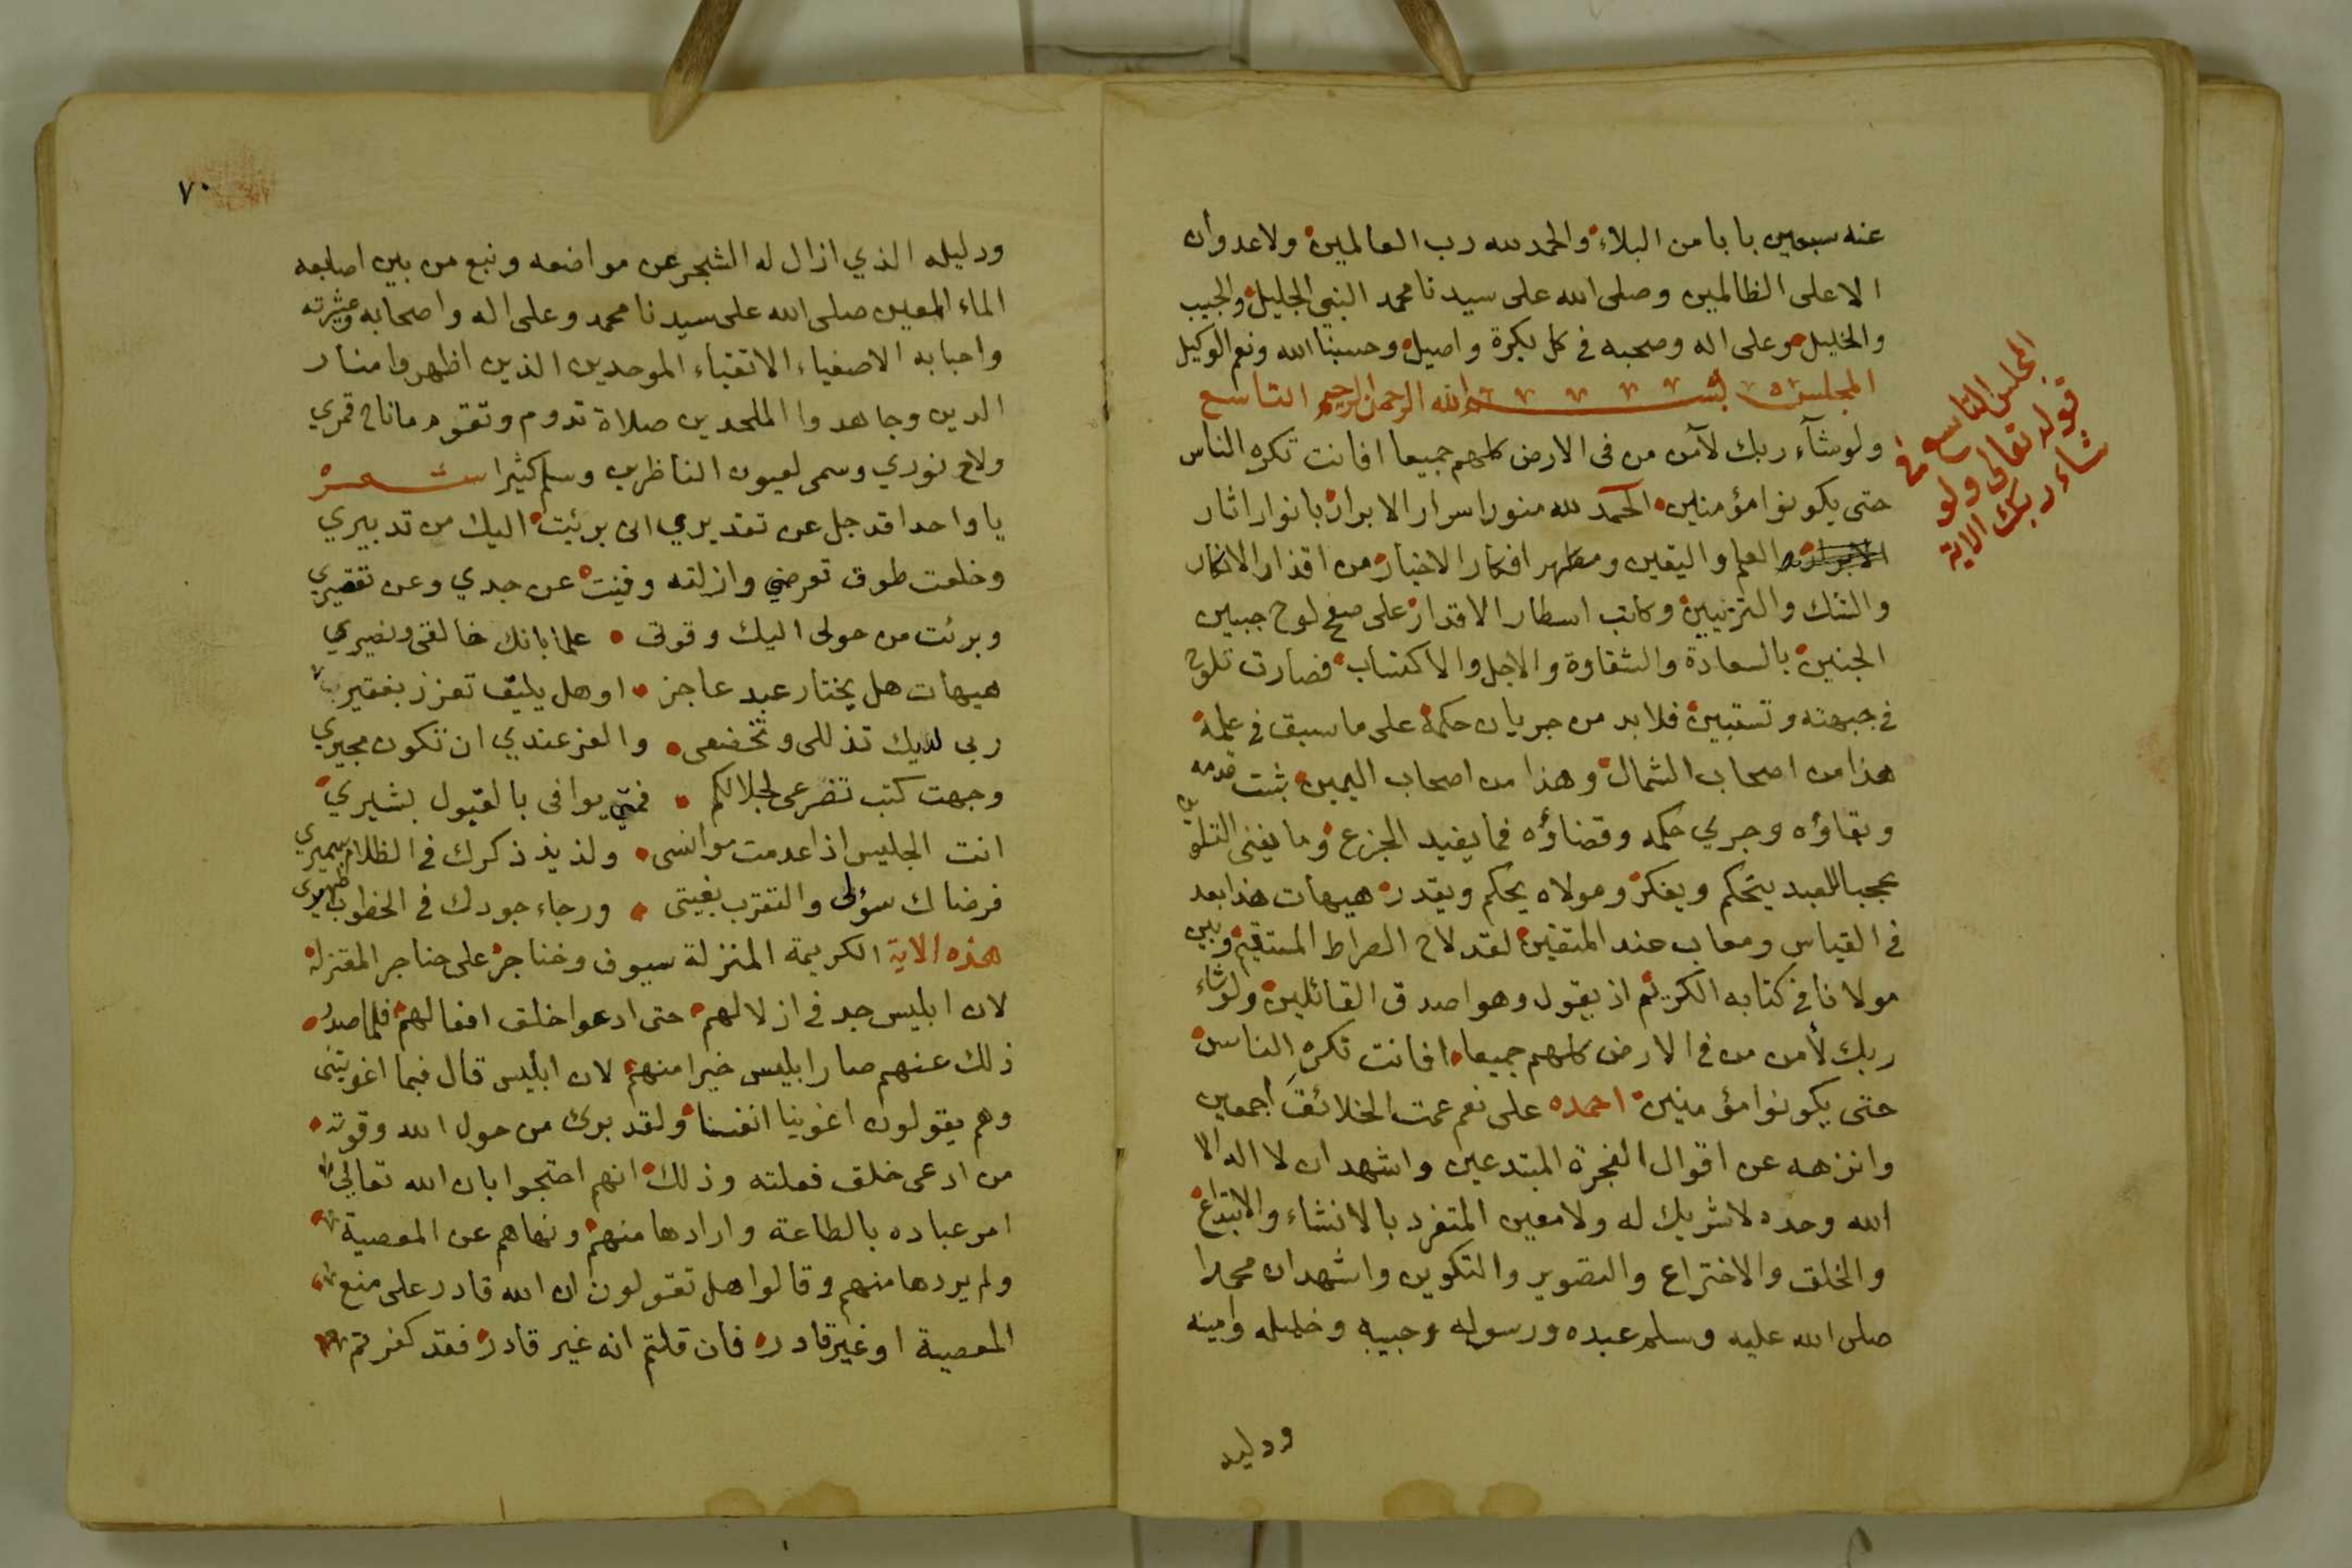 عنه سبعين بابا من البلاء والحمد لله رب العالمين ولا عدوان
الا على الظالمين وصلى الله على سيدنا محمد النبي الجليل والحبيب
والخليل وعلى اله وصحبه في كل بكرة واصيل وحسبنا الله ونعم الوكيل
المجلس بسم الله الرحمن الرحيم التاسع
المجلس التاسع في
قوله تعالى ولو
شاء ربك الاية
ولو شآء ربك لآمن من في الارض كلهم جميعا افانت تكره الناس
حتى يكونوا مؤمنين الحمد لله منور اسرار الابرار بانوار اثار
العلم واليقين ومطهر افكار الاخيار من اقذار الانكار
والشك والتزيين وكاتب اسطار الاقدار على صفح لوح جبين
الجنين بالسعادة والشقاوة والاجل والاكتساب فصارت تلوح
في جبهته وتستبين فلا بد من جريان حكمه على ما سبق في علمه
هذا من اصحاب الشمال وهذا من اصحاب اليمين ثبت قدمه
وبقاؤه وجرى حكمه وقضاؤه فما يفيد الجزع وما يغني
عجبا للعبد يتحكم ويفكر ومولاه يحكم ويقدر هيهات هذا بعد
في القياس ومعاب عند المتقين لقد لاح الصراط المستقيم وبين
مولانا في كتابه الكريم اذ يقول وهو اصدق القائلين ولو شاء
ربك لأمن من في الارض كلهم جميعا افانت تكره الناس
حتى يكونوا مؤمنين احمده على نعم عمت الخلائق اجمعين
وانزهه عن اقوال الفجرة المبتدعين واشهد ان لا اله الا
الله وحده لا شريك له ولا معين المتفرد بالانشاء والابتداع
والخلق والاختراع والتصوير والتكوين واشهد ان محمدا
صلى الله عليه وسلم عبده ورسوله وحبيبه وخليله وامينه
ودليله
٧٠
ودليله الذي ازال له الشجر عن مواضعه ونبع من بين اصابعه
الماء المعين صلى الله على سيدنا محمد وعلى اله واصحابه وعشيرته
واحبابه الاصفياء الاتقياء الموحدين الذين اظهروا منار
الدين وجاهدوا الملحدين صلاة تدوم وتقوم ما ناح قمري
ولاح نوري وسمى لعيون الناظرين وسلم كثيرا شعر
يا واحدا قد جل عن تقديري انى برئت اليك من تدبيري
وخلعت طوق تعرضي وازلته وفنيت عن جدي وعن تقصيري
وبرئت من حولى اليك وقوتى علما بانك خالقى ونصيري
هيهات هل يختار عبد عاجز او هل يليق تعزز بفقير
ربى لديك تذللى وتخضعى والعز عندي ان تكون مجيري
وجهت كتب تضرعى لجلالكم فمتى يوافى بالقبول بشيري
انت الجليس اذا عدمت موانسى ولذيذ ذكرك في الظلام سميري
فرضاك سؤلى والتقرب بغيتى ورجاء جودك في الخطوب ظهيري
هذه الاية الكريمة المنزلة سيوف وخناجر على حناجر المعتزلة
لان ابليس جد في ازلالهم حتى ادعوا خلق افعالهم فلما صدر
ذلك عنهم صار ابليس خيرا منهم لان ابليس قال فبما اغويتنى
وهم يقولون اغوينا انفسنا ولقد برئ من حول الله وقوته
من ادعى خلق فعلته وذلك انهم احتجوا بان الله تعالى
امر عباده بالطاعة وارادها منهم ونهاهم عن المعصية
ولم يردها منهم وقالوا هل تقولون ان الله قادر على منع
المعصية او غير قادر فان قلتم انه غير قادر فقد كفرتم